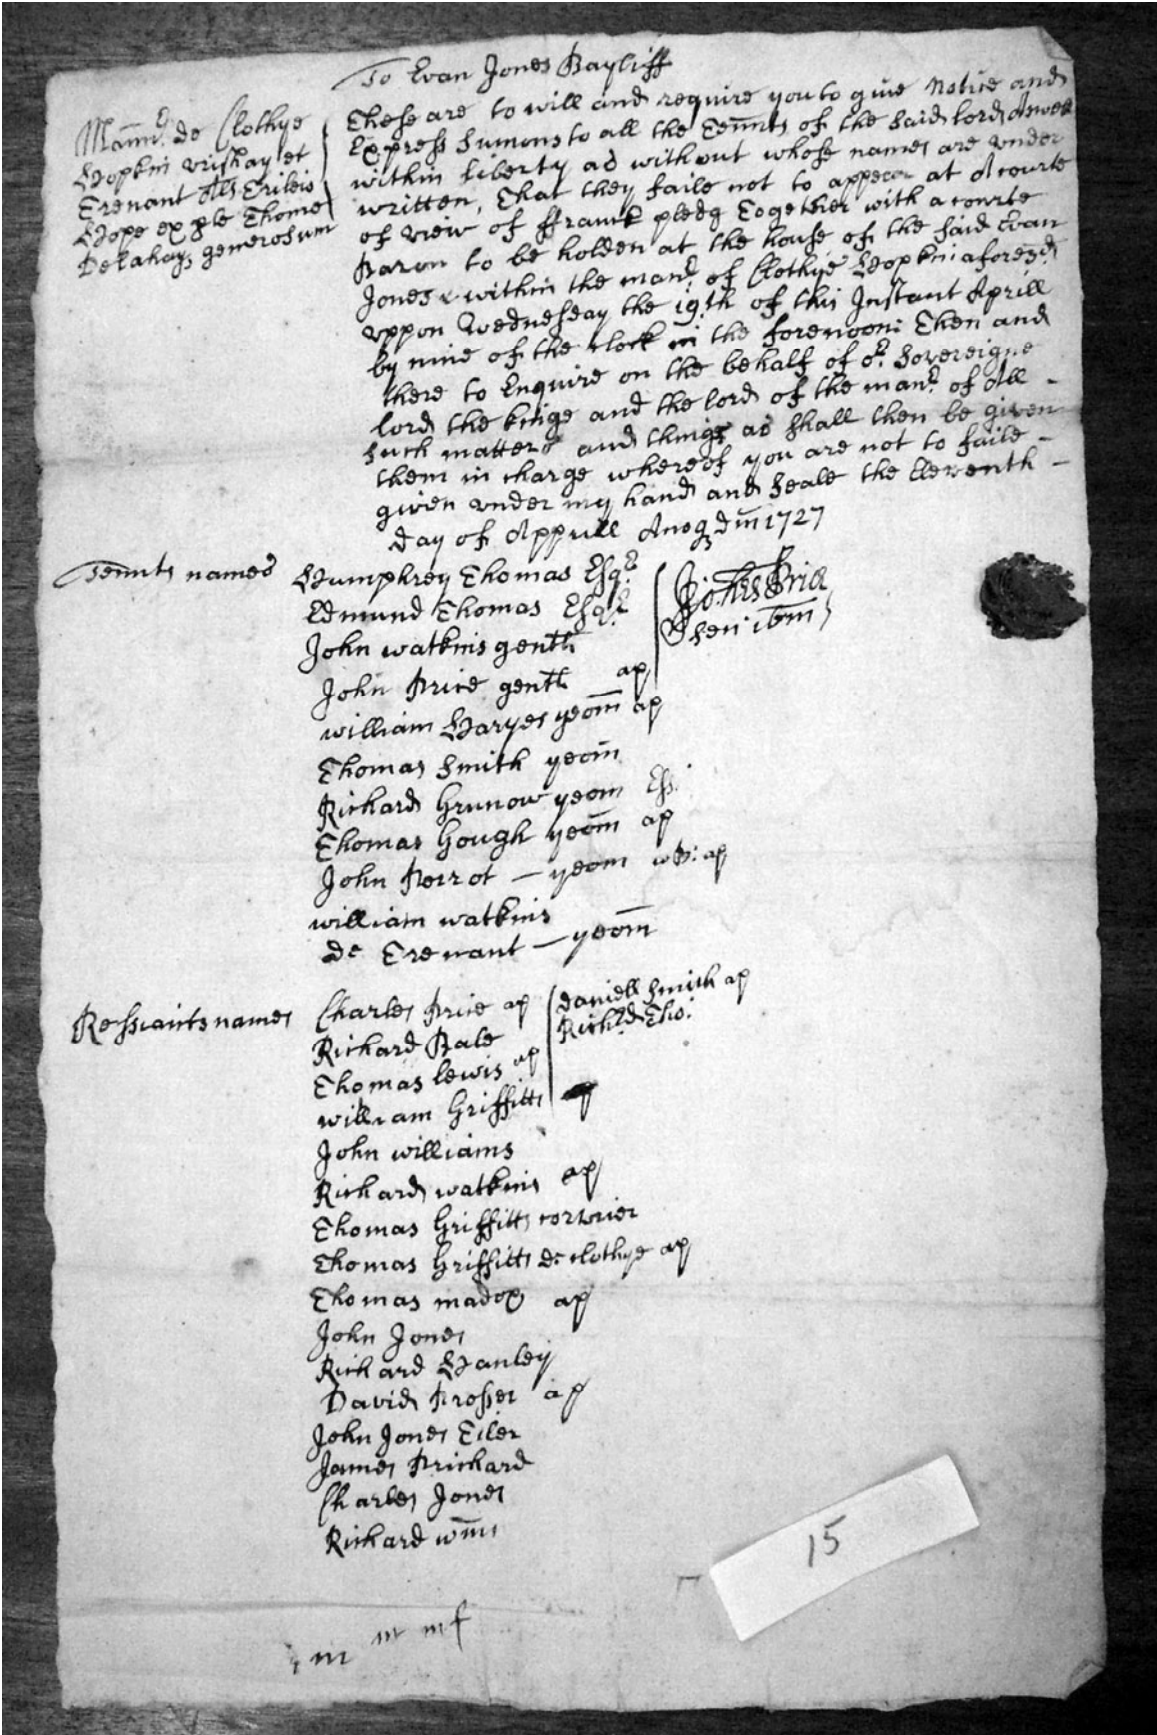 To Evan Jones Bayliff
Mann.r de Clothye
Hopkin vrishay et
Trenant Als
Hope ex Thome
Delahay generosum
These are to will and require you to give Notice and
Express Sumons to all the Tennts of the said lord Aswell
within liberty as without whose names are vnder
written, That they faile not to appear at A Courte
of view of ffrank pledg Together with a Courte
Baron to be holden at the house of the said Evan
Jones within the man.r of Clothye Hopkin aforesd
vppon Wednesday the 19.th of this Instant Aprill
by nine of the Clock in the forenoon: Then and
there to Enquire on the behalf of o.r Sovereigne
lord the kinge and the lord of the man.r of All -
such matters and things as shall then be given
them in charge whereof you are not to faile -
given vnder my hand and Seale the Eleventh -
Day of Apprill Anoq Dm 1727
Tennts names
Humphrey Thomas Esq.r
Edmund Thomas Esq.r
John watkins gentl
John Price gentl ap
william Haryes yeom ap
Thomas Smith yeom
Richard Grunow yeom Ess:
Thomas Gough yeom ap
John Perrot - yeom ap
william watkins
de Trenant - yeom
Johes Price
Sen ibm
Ressiants names
Charles Price ap
Richard Bale
Thomas lewis ap
william Griffitts ap
Daniell Smith ap
Rich.d Tho:
John williams
Richard watkins ap
Thomas Griffitts corvier
Thomas Griffitts de Clothye ap
Thomas madox ap
John Jones
Richard Hanley
David Prosser ap
John Jones Tiler
James Prichard
Charles Jones
Richard wms
15
m m mf